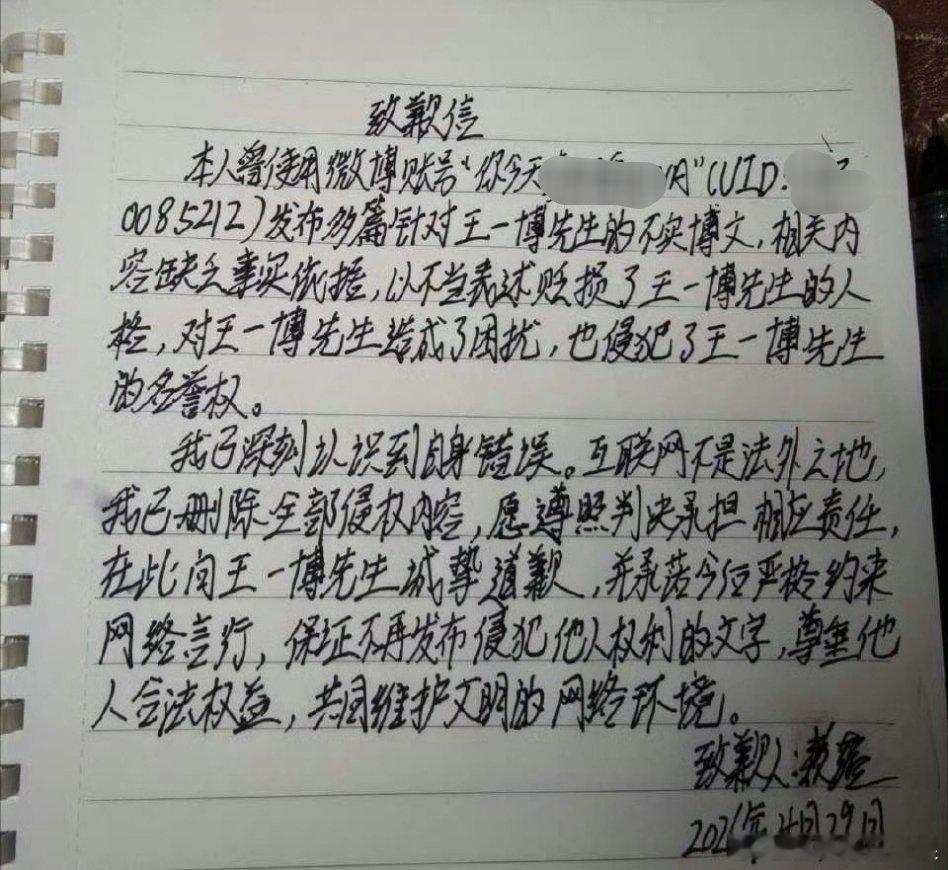 致歉信
本人曾使用微博账号“你今天 (UID:
0085212)发布多篇针对王一博先生的不实博文,相关内
容缺乏事实依据,以不当表述贬损了王一博先生的人
格,对王一博先生造成了困扰,也侵犯了王一博先生
的名誉权。
我已深刻认识到自身错误。互联网不是法外之地,
我已删除全部侵权内容,愿遵照判决承担相应责任,
在此向王一博先生诚挚道歉,并承诺今后严格约束
网络言行,保证不再发布侵犯他人权利的文字,尊重他
人合法权益,共同维护文明的网络环境。
致歉人:
年4月29日